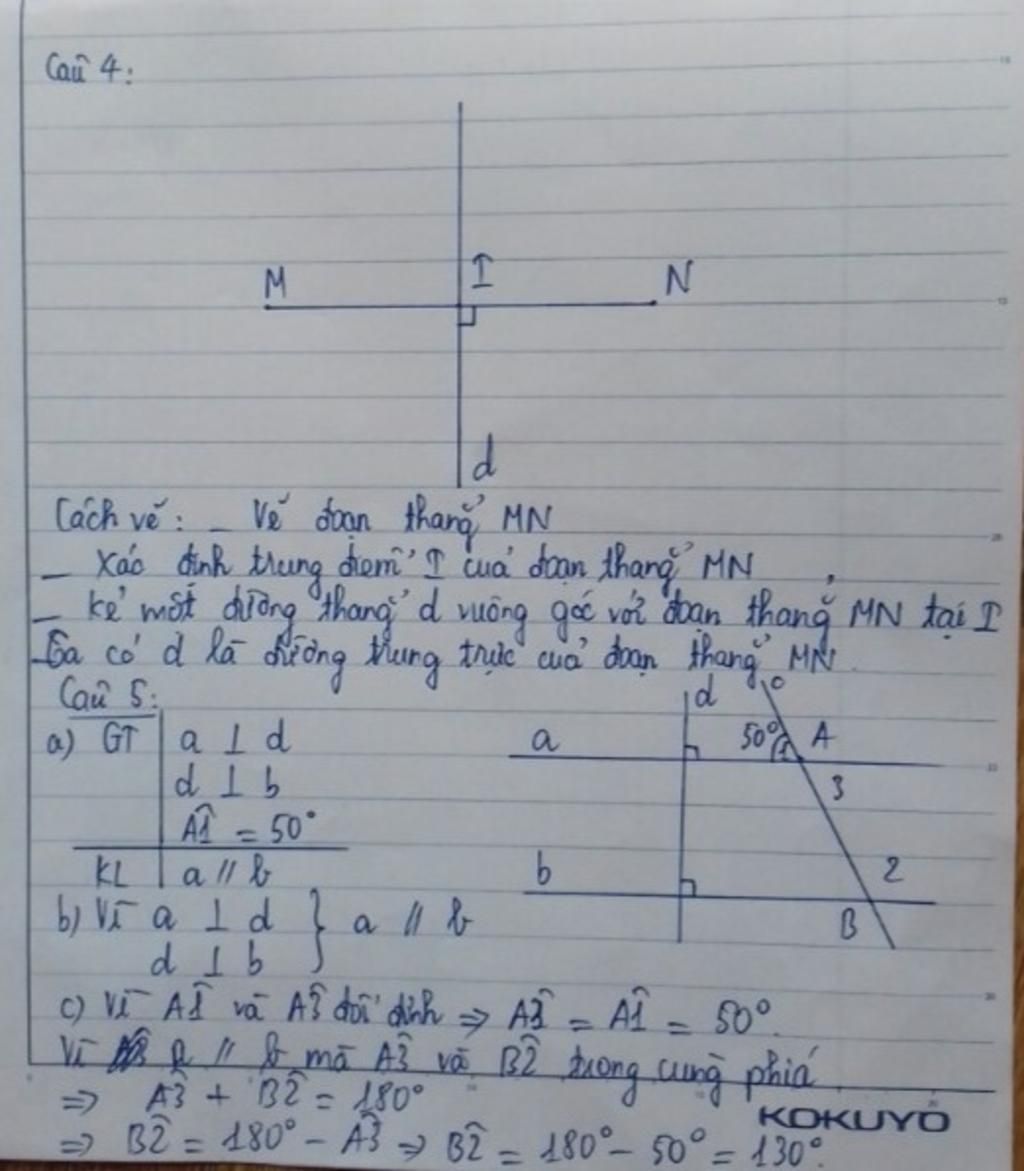 Câu 4:
M I N
d
Cách vẽ: _ Vẽ đoạn thẳng MN
_ Xác định trung điểm I của đoạn thẳng MN
_ kẻ một đường thẳng d vuông góc với đoạn thẳng MN tại I
Ta có d là đường trung trực của đoạn thẳng MN.
Câu 5:
d c
a) GT a ⊥ d
a 50° 1 A
d ⊥ b
3
Â1 = 50°
KL a // b
b 2
b) Vì a ⊥ d } a // b
B
d ⊥ b
c) Vì Â1 và Â3 đối đỉnh ⇒ Â3 = Â1 = 50°.
Vì a // b mà Â3 và B̂2 trong cùng phía
⇒ Â3 + B̂2 = 180°
KOKUYO
⇒ B̂2 = 180° - Â3 ⇒ B̂2 = 180° - 50° = 130°.